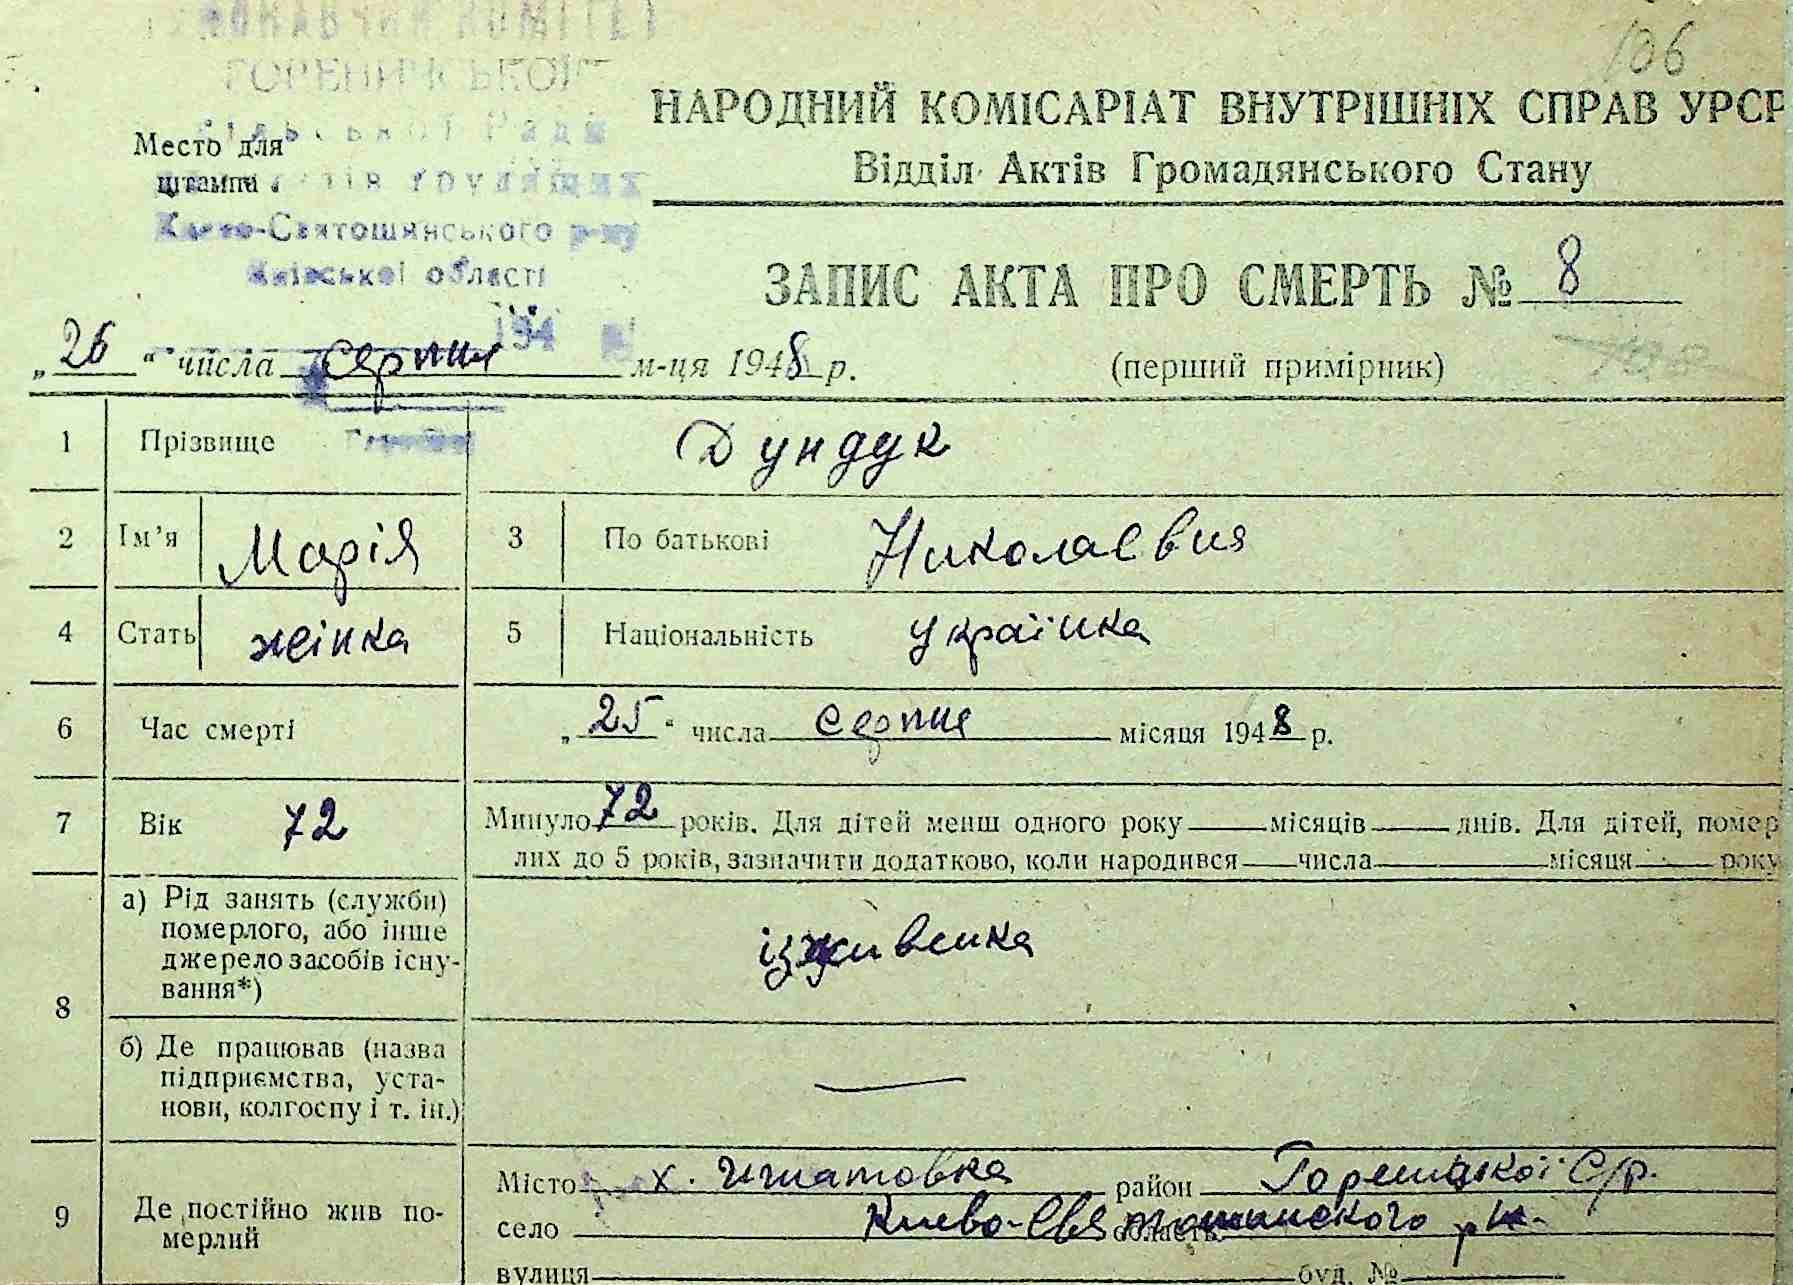 106
ГОРЕНИЧСЬКОЇ
сільської Ради
трудящих
Києво-Святошинського р-ну
Київської області
194
Место для
штампа
НАРОДНИЙ КОМІСАРІАТ ВНУТРІШНІХ СПРАВ УРСР
Відділ Актів Громадянського Стану
ЗАПИС АКТА ПРО СМЕРТЬ № 8
„26“ числа серпня м-ця 1948 р.
(перший примірник)
1 Прізвище Дундук
2 Ім’я Марія 3 По батькові Николаевня
4 Стать жінка 5 Національність українка
6 Час смерті „25“ числа серпня місяця 1948 р.
7 Вік 72 Минуло 72 років. Для дітей менш одного року місяців днів. Для дітей, помер
лих до 5 років, зазначити додатково, коли народився числа місяця року
8 а) Рід занять (служби)
померлого, або інше
джерело засобів існу-
вання*)
ізживенка
б) Де працював (назва
підприємства, уста-
нови, колгоспу і т. ін.)
—
9 Де постійно жив по-
мерлий
Місто х. Игнатовка район Гореницкої С/р.
село Киево-Святошинского рн. область
вулиця буд. №